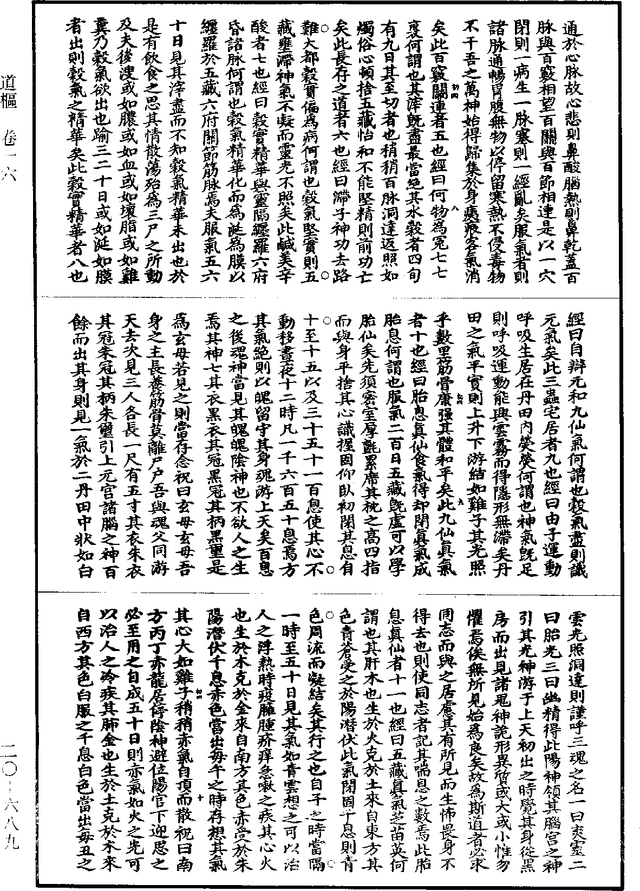 道樞　卷一六
二〇—六八九
通於心脉故心悲則鼻酸腦熱則鼻乾蓋百
脉與百竅相望百關與百節相連是以一穴
閉則一病生一脉塞則一經亂矣服氣者則
諸脉通暢胃腹無物以停留寒熱不侵毒物
不干吾之萬神始得歸集於身癘疫客氣消
矣此百竅關連者五也經曰何物為冤七七
寃何謂也其滓既盡最當絕其水穀者四旬
有九日其至切者也稍稍百脉洞達返照如
燭俗心頓捨五藏怡和不能堅精則前功亡
矣此長存之道者六也經曰滯子神功去路
難大都穀實偏為病何謂也穀氣堅實則五
藏壅滯神氣不凝而靈光不照矣此鹹美辛
酸者七也經曰穀實精華與靈隔纏羅六府
昏諸脉何謂也穀氣精華化而為涎為膜以
纏羅於五藏六府關節筋脉焉夫服氣五六
十日見其滓盡而不知穀氣精華未出也於
是有飲食之思其情散蕩殆為三尸之所動
及夫後溲或如膿或如血或如壞脂或如雞
糞乃穀氣欲出也踰三二十日或如涎如膜
者出則穀氣之精華矣此穀實精華者八也
經曰自辯元和九仙氣何謂也穀氣盡則識
元氣矣此三蟲宅居者九也經曰由子運動
呼吸生居在丹田內熒熒何謂也神氣既足
則呼吸運動能與雲霧而得隱形無滯矣丹
田之氣平實則上升下游結如雞子其光照
乎數里筋骨康强其體和平矣此九仙真氣
者十也經曰胎息真仙食氣得却閉真氣成
胎息何謂也服氣二百日五藏既虛可以學
胎仙矣先須密室厚氈累席其枕之高四指
而與身平捨其心識握固仰臥初閉其息自
十至十五以及三十五十一百息使其心不
動移晝夜十二時凡一千六百五十息焉方
其氣絕則以魄留守其身魂游上天矣百息
之後魂神當見其魄魄陰神也不欲人之生
焉其神七其衣黑衣其冠黑冠其柄黑璽是
為玄母若見之則當存念祝曰玄母玄母吾
身之主長養筋骨莫離尸戶吾與魂父同游
天去次見三人各長一尺有五寸其衣朱衣
其冠朱冠其柄朱璽引上元宫諸腦之神百
餘而出其身則見一氣於二丹田中狀如白
雲光照洞達則謹呼三魂之名一曰爽靈二
曰胎光三曰幽精得此陽神領其腦宫之神
引其光神游于上天初出之時覺其身從黑
房而出見諸鬼神詭形異質或大或小惟勿
懼焉俟無所見始為良矣故為斯道者必求
同志而與之居慮其有所見而生怖畏身不
得去也則使同志者記其喘息之數焉此胎
息真仙者十一也經曰五藏真氣芝苗英何
謂也其肝木也生於火克於土來自東方其
色青蒼受之於陽潛伏此氣閉固千息則青
色周流而凝結矣其行之也自子之時當隔
一時至五十日見其氣如青雲想之可以治
人之浮熱時疫癰腫疥痒急嗽之疾其心火
也生於木克於金來自南方其色赤受於朱
陽潛伏千息赤色當出每午之時存想其氣
其心大如雞子稍稍亦氣自頂而散祝曰南
方丙丁赤龍居停陰神避位陽官下迎思之
必至用之自成五十日則赤氣如火之光可
以治人之冷疾其肺金也生於土克於木來
自西方其色白服之千息白色當出每丑之